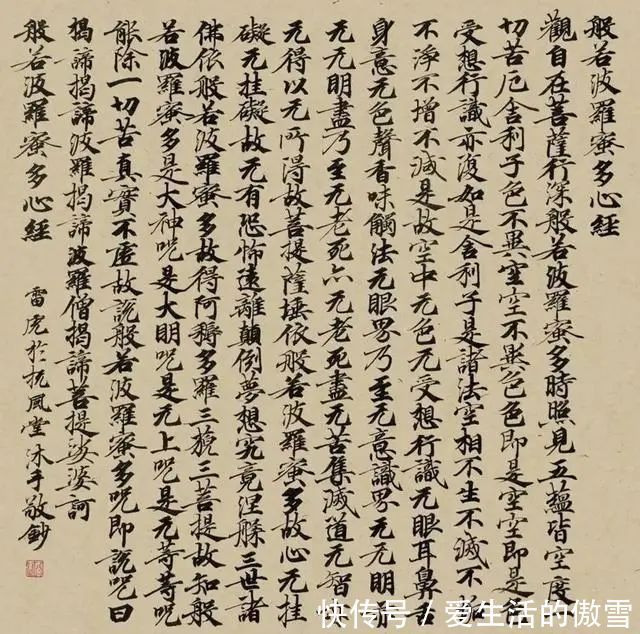 般若波羅蜜多心經
觀自在菩薩行深般若波羅蜜多時照見五蘊皆空度一
切苦厄舍利子色不異空空不異色色即是空空即是色
受想行識亦復如是舍利子是諸法空相不生不滅不垢
不淨不增不減是故空中无色无受想行識无眼耳鼻舌
身意无色聲香味觸法无眼界乃至无意識界无无明亦
无无明盡乃至无老死亦无老死盡无苦集滅道无智亦
无得以无所得故菩提薩埵依般若波羅蜜多故心无挂
礙无挂礙故无有恐怖遠離顛倒夢想究竟涅槃三世諸
佛依般若波羅蜜多故得阿耨多羅三藐三菩提故知般
若波羅蜜多是大神呪是大明呪是无上呪是无等等呪
能除一切苦真實不虛故說般若波羅蜜多呪即說呪曰
揭諦揭諦波羅揭諦波羅僧揭諦菩提娑婆訶
般若波羅蜜多心經
雷虎於抚風堂沐手敬鈔
快传号 / 爱生活的傲雪